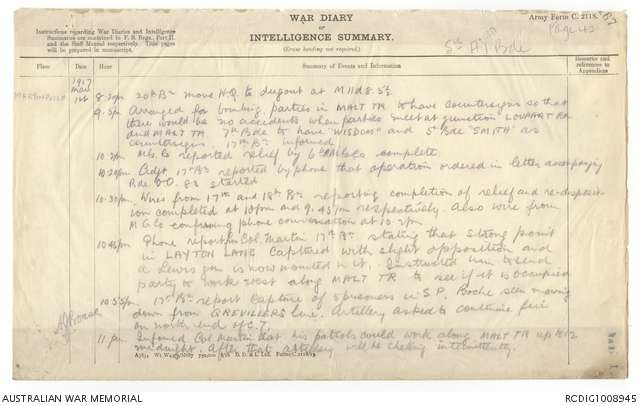 WAR DIARY
or
INTELLIGENCE SUMMARY.
(Erase heading not required.)
Army Form C. 2118.
Instructions regarding War Diaries and Intelligence
Summaries are contained in F. S. Regs., Part II.
and the Staff Manual respectively. Title pages
will be prepared in manuscript.
Page 42
5th A I Bde
Place
Date
Hour
Summary of Events and Information
Remarks and
references to
Appendices
MARTINPUICH
1917
Mar
1st
8.30pm 20th Bn move HQ to dugout at M11d8.5½
9.5pm Arranged for bombing parties in MALT TR to have countersigns so that
there would be no accidents when parties meet at junction LOUPART RD
and MALT TR 7th Bde to have "WISDOM" and 5th Bde "SMITH" as
countersigns 17th Bn informed
10.2pm M.G. Co reported relief by 6th AMG Co complete.
10.20pm Adjt. 17th Bn reported by phone that operation ordered in letter accompanying
Bde O.O. 83 started
10.30pm Wires from 17th and 18th Bn reporting completion of relief and re-disposit-
ion completed at 10pm and 9.45pm respectively. Also wire from
M G Co confirming phone conversation at 10.2pm
10.45pm Phone report from Col. Martin 17th Bn stating that strong point
in LAYTON LANE captured with slight opposition and
a Lewis gun is now mounted in it. Instructed him to send
party to work west along MALT TR to see if it is occupied
10.55pm 17th Bn report capture of prisoners in S.P. Boche seen moving
down from GREVILLERS line. Artillery asked to continue fire
on north end of C.T.
11.pm Informed Col Martin that his patrols could work along MALT TR up to 12
midnight. After that artillery will be shelling intermittently.
D. D. & L. Ltd.
AUSTRALIAN WAR MEMORIAL
RCDIG1008945